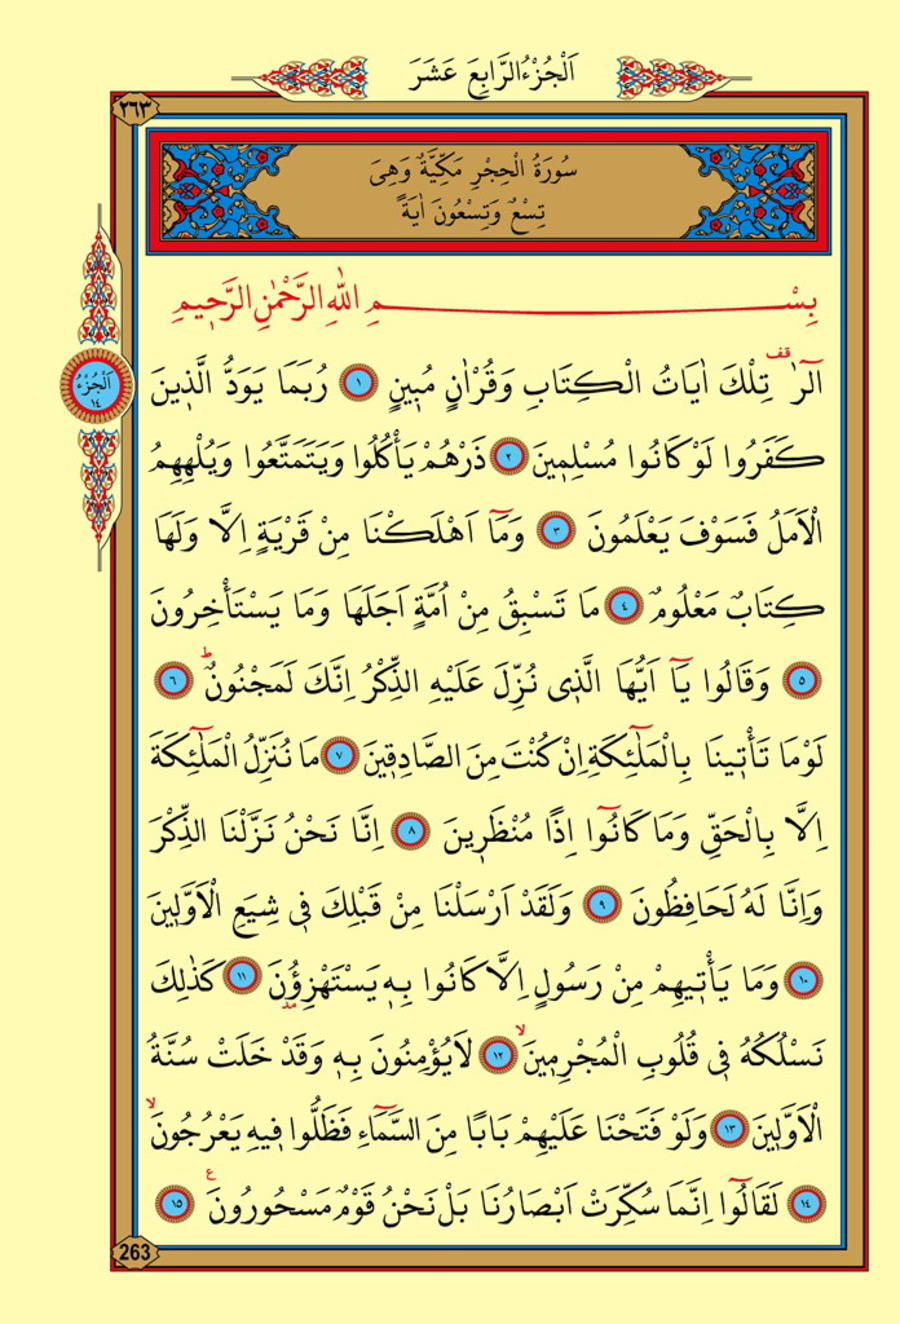 اَلْجُزْءُ الرَّابِعَ عَشَرَ
٢٦٣
سُورَةُ الْحِجْرِ مَكِّيَّةٌ وَهِىَ
تِسْعٌ وَتِسْعُونَ اٰيَةً
بِسْمِ اللّٰهِ الرَّحْمٰنِ الرَّحٖيمِ
اَلْجُزْءُ
١٤
الٓرٰ قف تِلْكَ اٰيَاتُ الْكِتَابِ وَقُرْاٰنٍ مُبٖينٍ ١ رُبَمَا يَوَدُّ الَّذٖينَ
كَفَرُوا لَوْ كَانُوا مُسْلِمٖينَ ٢ ذَرْهُمْ يَأْكُلُوا وَيَتَمَتَّعُوا وَيُلْهِهِمُ
الْاَمَلُ فَسَوْفَ يَعْلَمُونَ ٣ وَمَٓا اَهْلَكْنَا مِنْ قَرْيَةٍ اِلَّا وَلَهَا
كِتَابٌ مَعْلُومٌ ٤ مَا تَسْبِقُ مِنْ اُمَّةٍ اَجَلَهَا وَمَا يَسْتَأْخِرُونَ
٥ وَقَالُوا يَٓا اَيُّهَا الَّذٖى نُزِّلَ عَلَيْهِ الذِّكْرُ اِنَّكَ لَمَجْنُونٌ ط ٦
لَوْمَا تَأْتٖينَا بِالْمَلٰٓئِكَةِ اِنْ كُنْتَ مِنَ الصَّادِقٖينَ ٧ مَا نُنَزِّلُ الْمَلٰٓئِكَةَ
اِلَّا بِالْحَقِّ وَمَا كَانُٓوا اِذًا مُنْظَرٖينَ ٨ اِنَّا نَحْنُ نَزَّلْنَا الذِّكْرَ
وَاِنَّا لَهُ لَحَافِظُونَ ٩ وَلَقَدْ اَرْسَلْنَا مِنْ قَبْلِكَ فٖى شِيَعِ الْاَوَّلٖينَ
١٠ وَمَا يَأْتٖيهِمْ مِنْ رَسُولٍ اِلَّا كَانُوا بِهٖ يَسْتَهْزِؤُنَ مد ١١ كَذٰلِكَ
نَسْلُكُهُ فٖى قُلُوبِ الْمُجْرِمٖينَ لا ١٢ لَا يُؤْمِنُونَ بِهٖ وَقَدْ خَلَتْ سُنَّةُ
الْاَوَّلٖينَ ١٣ وَلَوْ فَتَحْنَا عَلَيْهِمْ بَابًا مِنَ السَّمَٓاءِ فَظَلُّوا فٖيهِ يَعْرُجُونَ لا
١٤ لَقَالُٓوا اِنَّمَا سُكِّرَتْ اَبْصَارُنَا بَلْ نَحْنُ قَوْمٌ مَسْحُورُونَ ع ١٥
263